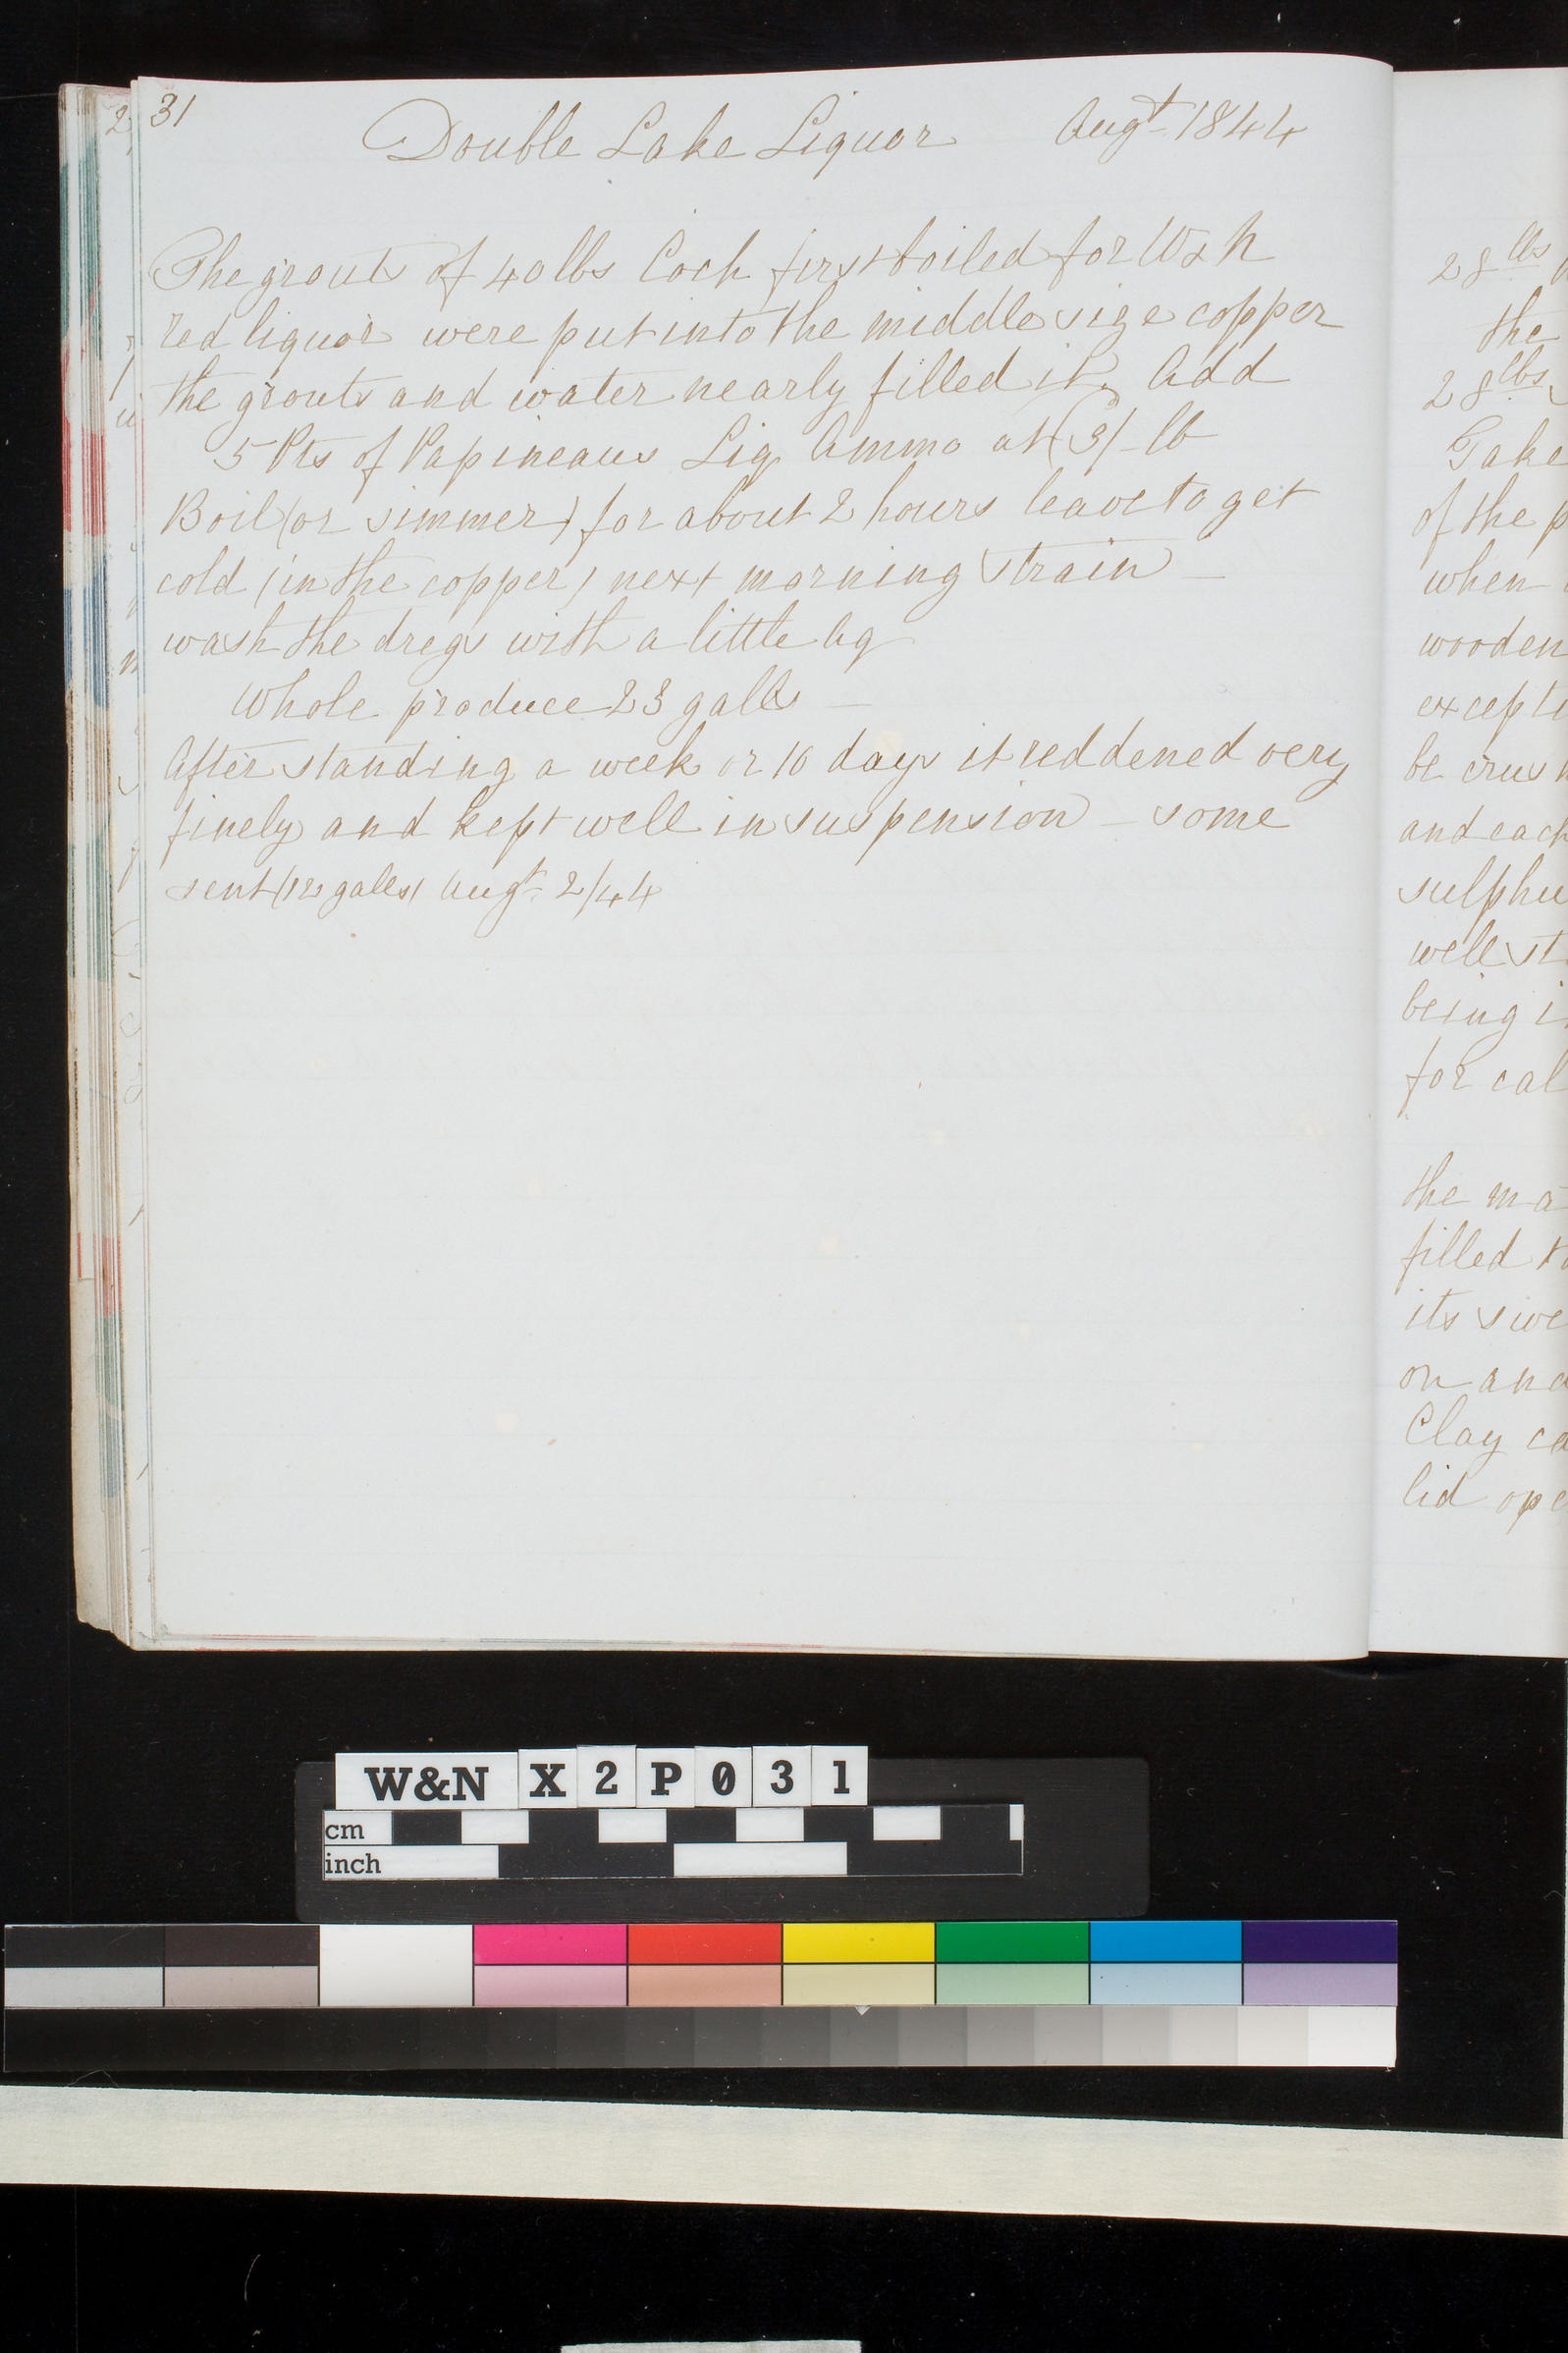 31
Double Lake Liquor Augt 1844
The grouts of 40 lbs Coch first boiled for W & N
red liquor were put into the middle size copper
the grouts and water nearly filled it. Add
5 Pts of Papineaus Liq Ammo at (3/- lb
Boil (or simmer) for about 2 hours leave to get
cold (in the copper) next morning strain —
wash the dregs with a little aq
Whole produce 23 galls —
After standing a week or 10 days it reddened very
finely and kept well in suspension — some
sent (12 galls) Augt 2/44
28 lbs
the
28 lbs
Take
of the p
when
wooden
excepti
be crush
and each
sulphu
well st
being i
for cal
the ma
filled to
its swe
on and
Clay ca
lid ope
W&N X2P031
cm
inch